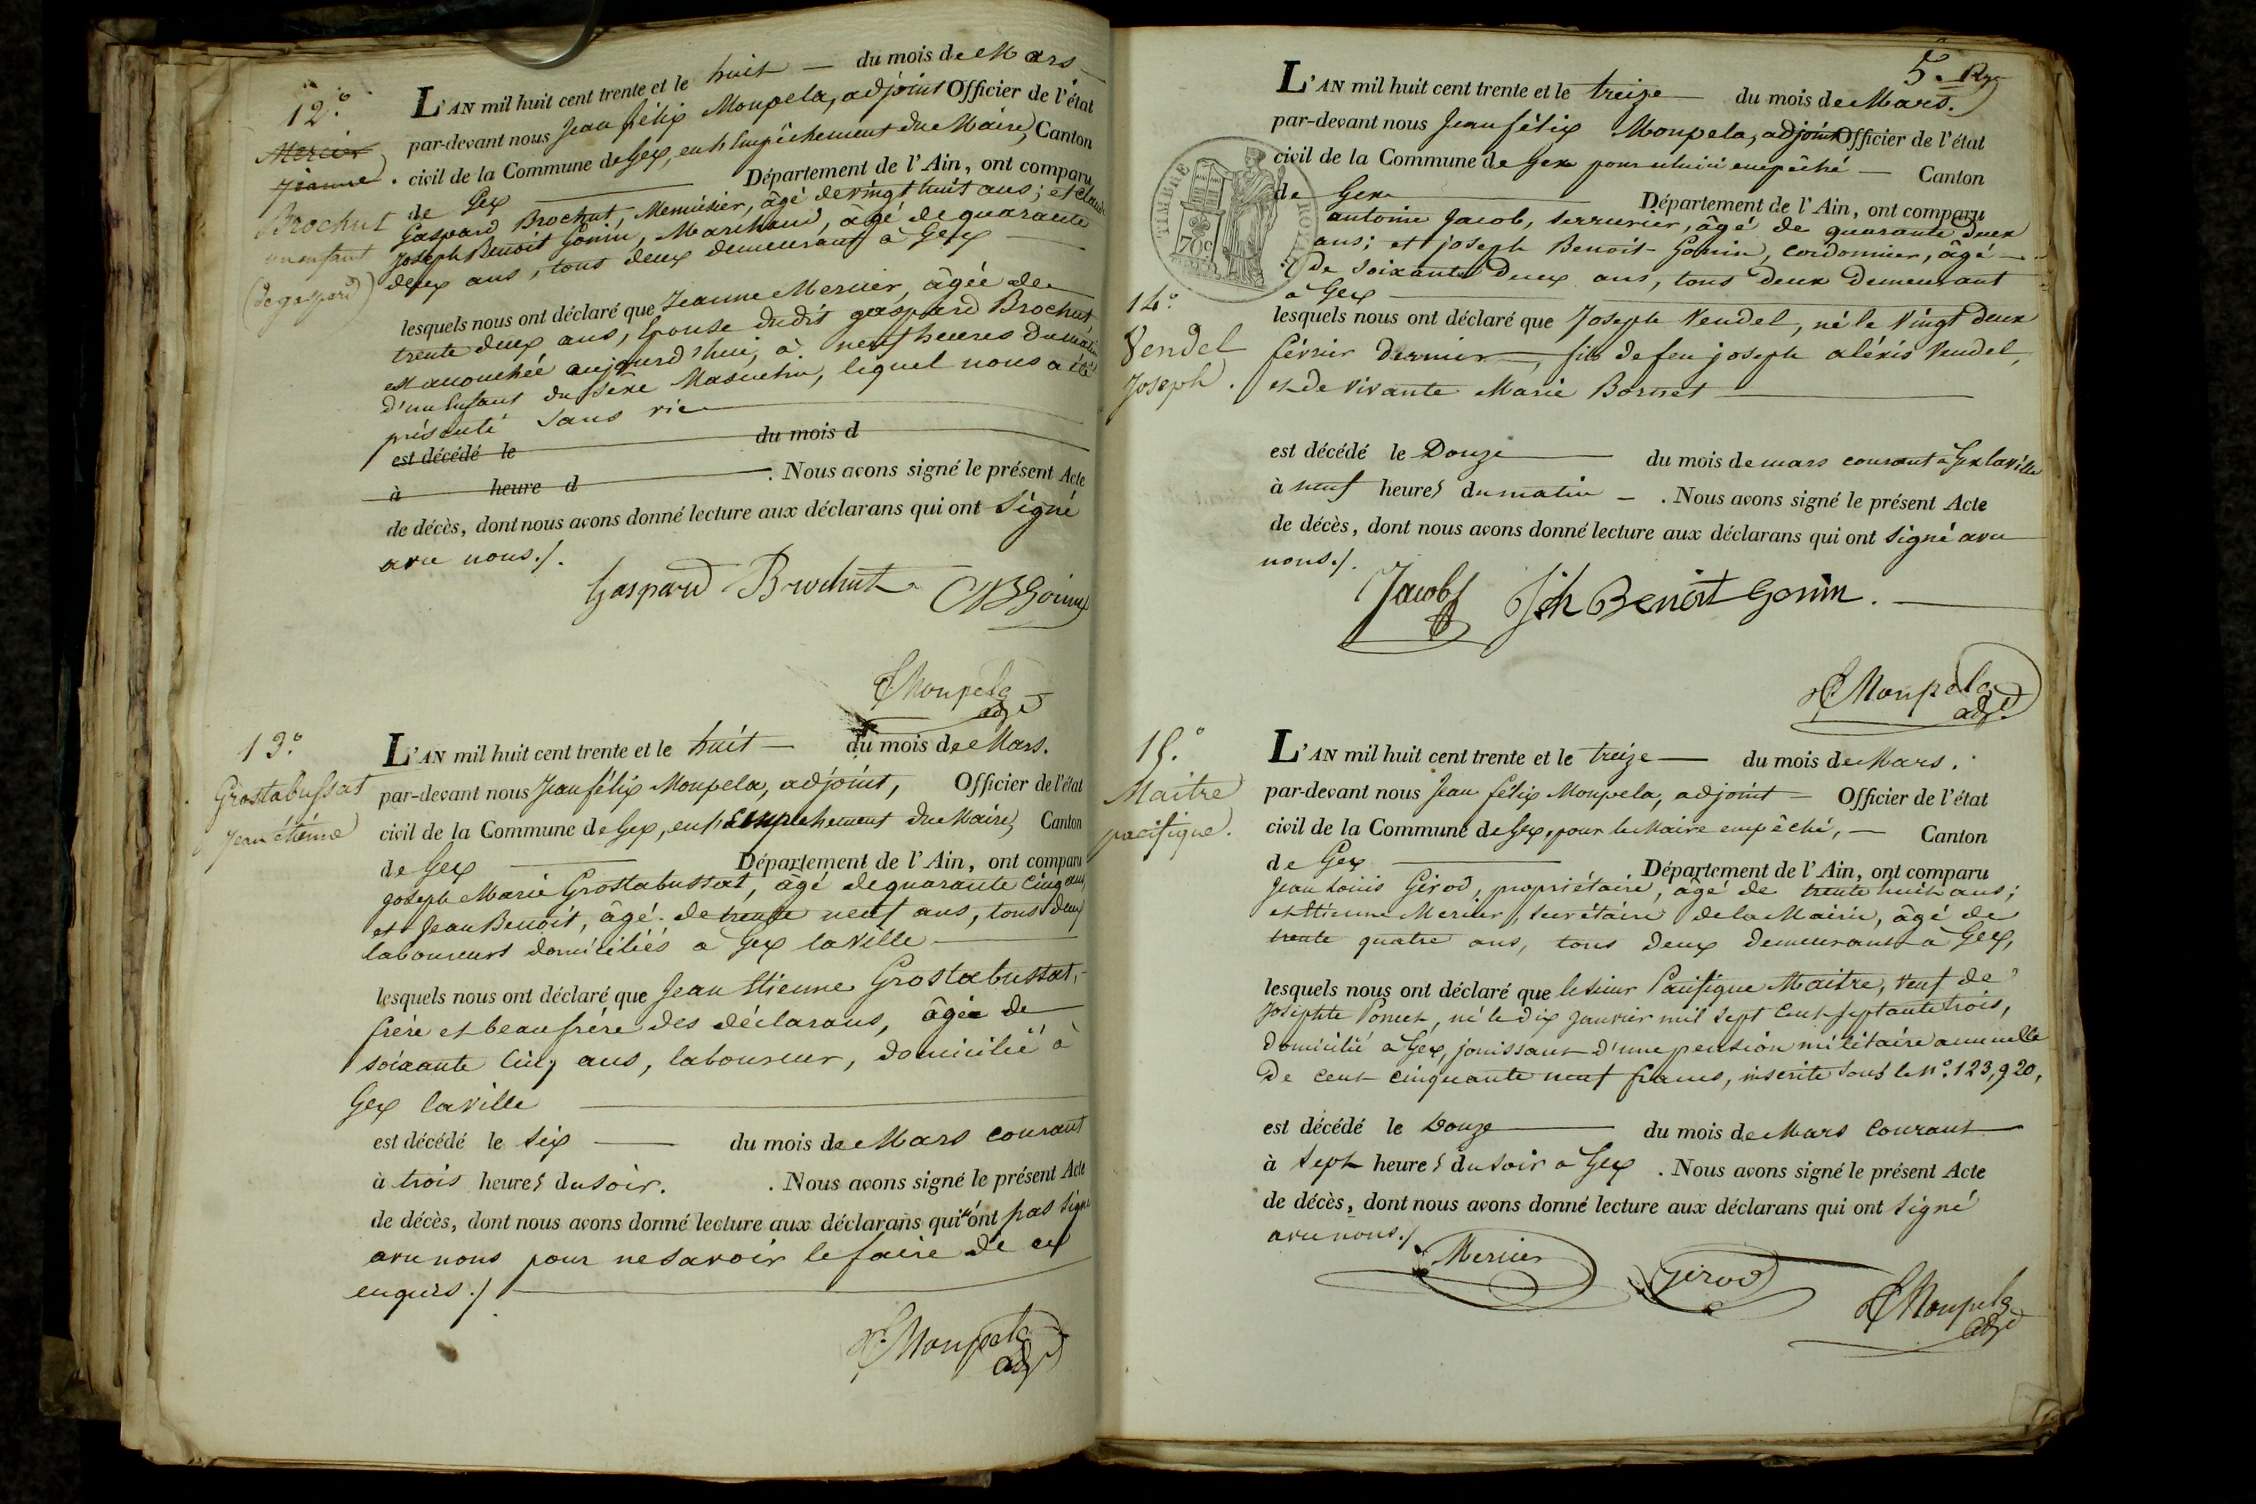 12.°
Mercier
Jeanne.
Brochut
un enfant
(de gaspard)
L'AN mil huit cent trente et le huit — du mois de Mars —
par-devant nous Jean félix Monpela, adjoint Officier de l'état
civil de la Commune de Gex, en l'Empêchement du Maire, Canton
de Gex — Département de l'Ain, ont comparu
Gaspard Brochut, Menuisier, âgé de vingt huit ans; et Claude
Joseph Benoit Gonin, Marchand, âgé de quarante
deux ans, tous deux demeurant à Gex —
lesquels nous ont déclaré que Jeanne Mercier, âgée de
trente deux ans, Epouse dudit gaspard Brochut
est accouchée aujourd'hui, à neuf heures du matin
d'un Enfant du Sexe Masculin, lequel nous a été
présenté Sans vie
est décédé le du mois d
à heure d . Nous avons signé le présent Acte
de décès, dont nous avons donné lecture aux déclarans qui ont Signé
avec nous./.
Gaspard Brochut CJBGonin
JfMonpela
adj.
13.°
Grostabussat
Jean étiénne
L'AN mil huit cent trente et le huit — du mois de Mars.
par-devant nous Jean félix Monpela, adjoint, Officier de l'état
civil de la Commune de Gex, en l'Empêchement du Maire, Canton
de Gex — Département de l'Ain, ont comparu
joseph Marie Grostabussat, âgé de quarante Cinq ans,
et Jean Benoit, âgé de trente neuf ans, tous deux
laboureurs domiciliés a Gex la ville —
lesquels nous ont déclaré que Jean Etienne Grostabussat,
frère et beau frère des déclarans, âgée de
soixante Cinq ans, laboureur, domicilié à
Gex la ville —
est décédé le Six — du mois de Mars courant
à trois heures du soir. . Nous avons signé le présent Acte
de décès, dont nous avons donné lecture aux déclarans qui n'ont pas signé
avec nous pour ne savoir le faire de ce
enquis./.
JfMonpela
adj.
5.e
L'AN mil huit cent trente et le treize — du mois de Mars.
par-devant nous Jean félix Monpela, adjoint Officier de l'état
civil de la Commune de Gex pour celui ci empêché — Canton
de Gex — Département de l'Ain, ont comparu
antoine Jacob, serrurier, âgé de quarante deux
ans; et joseph Benoit-Gonin, cordonnier, âgé —
de soixante Deux ans, tous deux demeurant
a Gex —
TIMBRE ROYAL
70c
14.°
Vendel
Joseph.
lesquels nous ont déclaré que Joseph Vendel, né le Vingt deux
février dernier —, fils de feu joseph aléxis Vendel,
et de vivante Marie Bornet —
est décédé le Douze — du mois de mars courant a Gex la ville
à neuf heures du matin — . Nous avons signé le présent Acte
de décès, dont nous avons donné lecture aux déclarans qui ont signé avec
nous./.
Jacob Jph Benoit Gonin.
JfMonpela
adj.
15.°
Maitre
pacifique.
L'AN mil huit cent trente et le treize — du mois de Mars.
par-devant nous Jean félix Monpela, adjoint — Officier de l'état
civil de la Commune de Gex, pour le Maire empêché, — Canton
de Gex — Département de l'Ain, ont comparu
Jean Louis Girod, propriétaire, âgé de trente huit ans;
et Etienne Mercier, secrétaire de la Mairie, âgé de
trente quatre ans, tous deux demeurant à Gex,
lesquels nous ont déclaré que le sieur Pacifique Maitre, Veuf de
Josephte Poncet, né le dix janvier mil sept Cent septante trois,
domicilié a Gex, jouissant d'une pension militaire annuelle
De cent cinquante neuf francs, inscrite sous le N.° 123,920,
est décédé le Douze — du mois de Mars Courant
à sept heures du soir a Gex . Nous avons signé le présent Acte
de décès, dont nous avons donné lecture aux déclarans qui ont signé
avec nous./
Mercier Girod JfMonpela
adj.